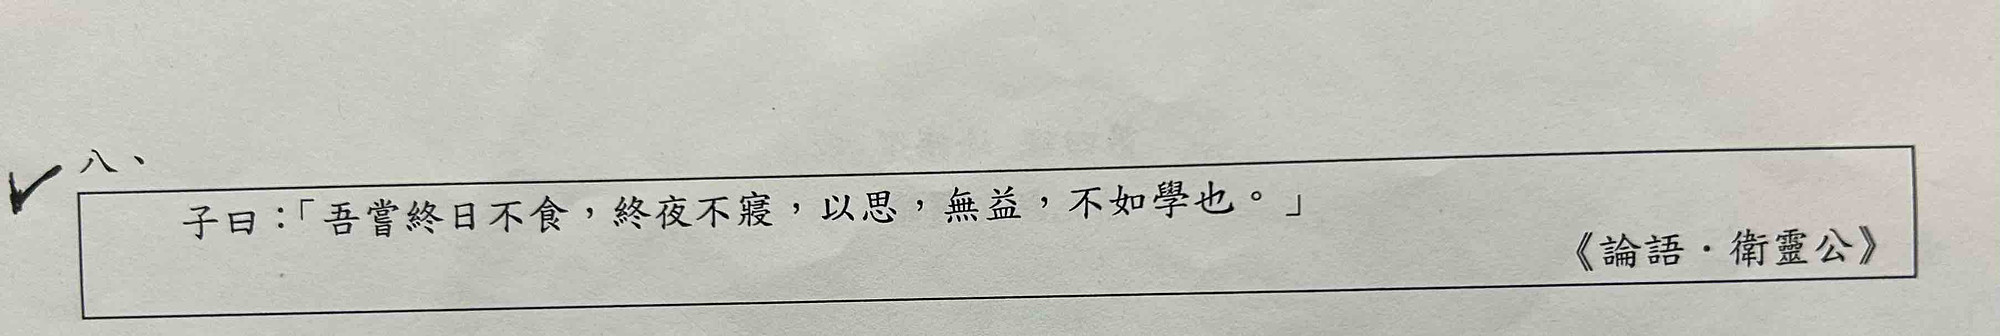 八、
子曰：「吾嘗終日不食，終夜不寢，以思，無益，不如學也。」
《論語·衛靈公》